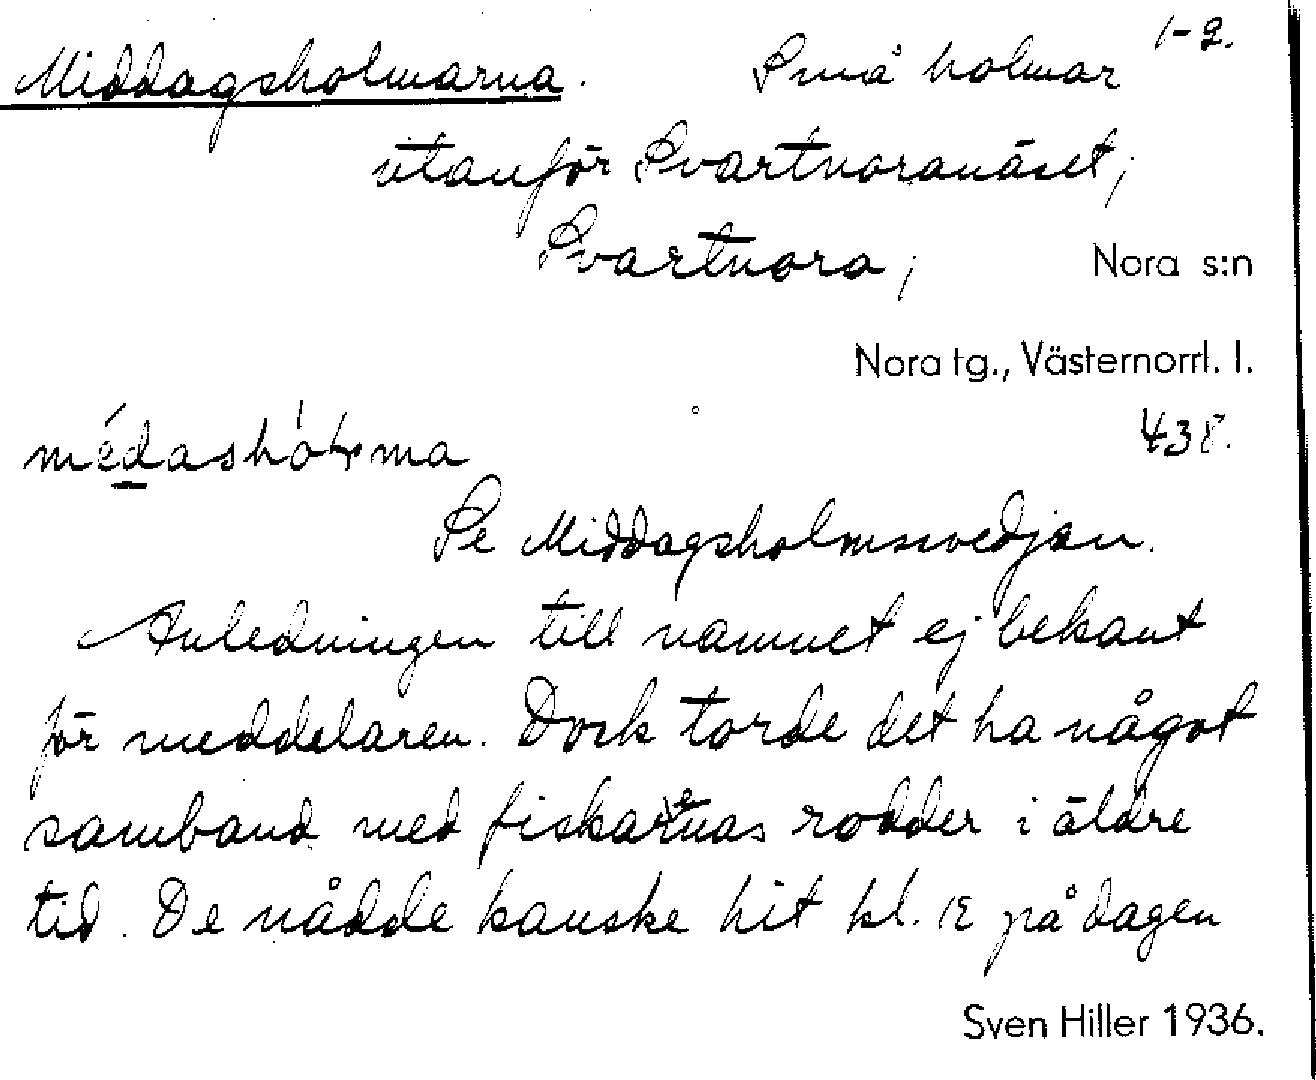 Middagsholmarna. Små holmar 1-2.
utanför Svartnoranäset;
Svartnora; Nora s:n
Nora tg., Västernorrl. l.
438.
Se Middagsholmssvedjan.
Anledningen till namnet ej bekant
för meddelaren. Dock torde det ha något
samband med fiskarenas rodder i äldre
tid. De nådde kanske hit kl. 12 på dagen
Sven Hiller 1936.